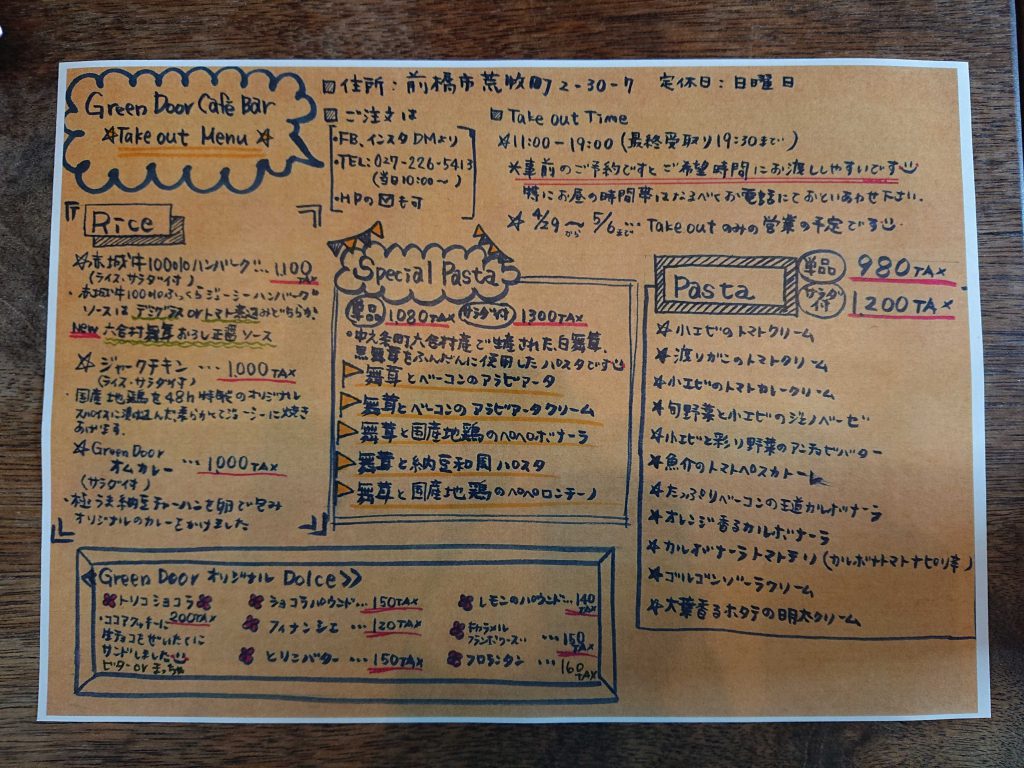 Green Door Café Bar
☆Take out Menu☆
住所：前橋市荒牧町2-30-7 定休日：日曜日
ご注文は
・FB、インスタDMより
・TEL：027-226-5413
(当日10:00〜)
・HPの✉も可
Take out Time
☆11:00-19:00(最終受取り19:30まで)
※事前のご予約ですとご希望時間にお渡ししやすいです
特にお昼の時間帯はなるべくお電話にてお問いあわせ下さい。
☆4/29から〜5/6まで…Take outのみの営業の予定です
Rice
☆赤城牛100%ハンバーグ…1,100TAX
(ライス・サラダ付)
・赤城牛100%ふっくらジューシーハンバーグ
ソースはデミグラスorトマト煮込みどちらか
New 六合村舞茸おろし正醤ソース
☆ジャークチキン…1,000TAX
(ライス・サラダ付)
・国産地鶏を48h特製のオリジナル
スパイスに漬込んだ柔らかくてジューシーに焼き
あげます。
☆Green Door
オムカレー…1,000TAX
(サラダ付)
・極うま納豆チャーハンを卵で包み
オリジナルのカレーをかけました
Special Pasta
単品 1080TAX サラダ付 1300TAX
・中之条町六合村産で生産された白舞茸、
黒舞茸をふんだんに使用したパスタです
舞茸とベーコンのアラビアータ
舞茸とベーコンのアラビアータクリーム
舞茸と国産地鶏のペペロボナーラ
舞茸と納豆和風パスタ
舞茸と国産地鶏のペペロンチーノ
Pasta
単品 980TAX
サラダ付 1,200TAX
☆小エビのトマトクリーム
☆渡りがにのトマトクリーム
☆小エビのトマトカレークリーム
☆旬野菜と小エビのジェノベーゼ
☆小エビと彩り野菜のアンチョビバター
☆魚介のトマトペスカトーレ
☆たっぷりベーコンの王道カルボナーラ
☆オレンジ香るカルボナーラ
☆カルボナーラトマトチリ(カルボナトマトナピリ辛)
☆ゴルゴンゾーラクリーム
☆大葉香るホタテの明太クリーム
Green Door オリジナル Dolce
トリコショコラ
200TAX
・ココアクッキーに
生チョコをぜいたくに
サンドしました
ビター or まっちゃ
ショコラパウンド…150TAX
フィナンシェ…120TAX
とりこバター…150TAX
レモンのパウンド…140TAX
キャラメル
フランボワーズ…150TAX
フロランタン…160TAX